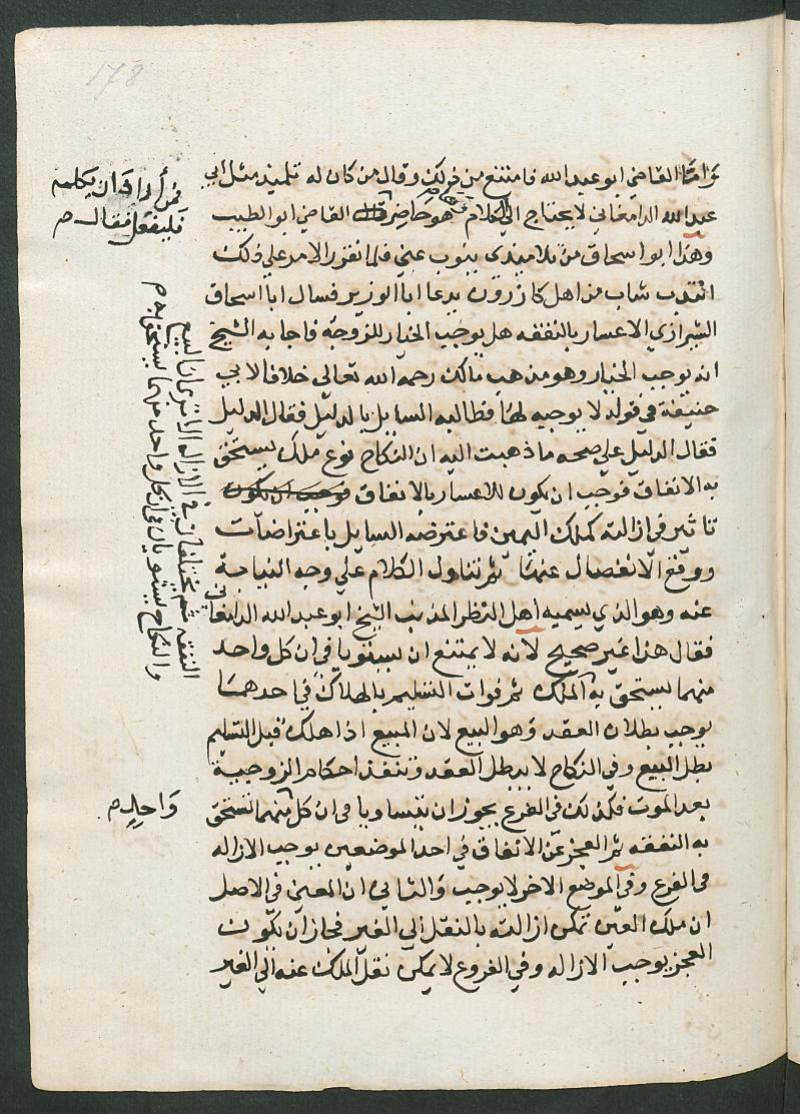 178
وامّا القاضي ابو عبد الله فامتنع من ذلك وقال من كان له تلميذ مثل ابي
عبد الله الدامغاني لا يحتاج الي الكلام وهو حاضر القاضي ابو الطيب
وهذا ابو اسحاق من تلامذتي ينوب عني فلما تقرر الامر علي ذلك
انتدب شاب من اهل كازرون يدعا ابا الوزير فسال ابا اسحاق
الشيرازي الاعسار بالنفقه هل يوجب الخيار للزوجه فاجابه الشيخ
انه يوجب الخيار وهو مذهب مالك رحمه الله تعالي خلافا لابي
حنيفة في قوله لا يوجبه لها فطالبه السايل بالدليل فقال الدليل
فقال الدليل علي صحه ما ذهبت اليه ان النكاح نوع ملك يستحق
به الانفاق فوجب ان يكون للاعسار بالانفاق فوجب ان يكون
تاثير في ازالته كملك اليمين فاعترضه السايل باعتراضات
ووقع الانفصال عنها ثم تناول الكلام علي وجه النيابة
عنه وهو الذي يسميه اهل النظر المذنب الشيخ ابو عبد الله الدامغاني
فقال هذا غير صحيح لانه لا يمتنع ان يستويا في ان كل واحد
منهما يستحق به الملك ثم فوات التسليم بالهلاك في احدهما
يوجب بطلان العقد وهو البيع لان المبيع اذا هلك قبل التسليم
بطل البيع وفي النكاح لا يبطل العقد وتنفذ احكام الزوجية
بعد الموت فكذلك في الفرع يجوز ان يتساويا في ان كل منهما تستحق
به النفقه ثم العجز عن الانفاق في احد الموضعين يوجب الازاله
في الفرع وفي الموضع الاخر لا يوجب والثاني ان المعني في الاصل
ان ملك العين تمكن ازالته بالنقل الي الغير فجاز ان يكون
العجز يوجب الازاله وفي الفروع لا يمكن نقل الملك عنه الي الغير
فمن أراد ان يكلمه
فليفعل فقال م
النفقه ثم يختلفان في الازاله الا تري ان البيع
والنكاح يستويان في ان كل واحد منهما يستحق به م
واحدٍ م